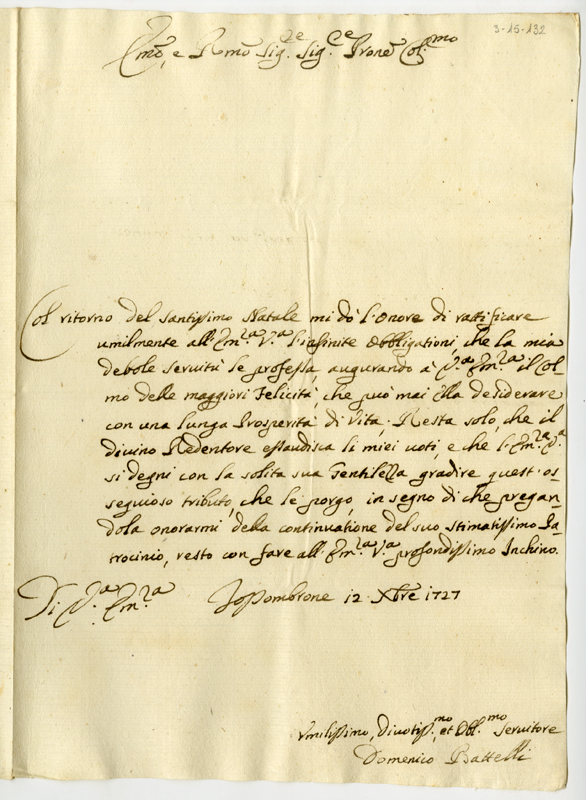 3-15-132
Emo, e Rmo Sig.re Sig.re Prone Col.mo
Col ritorno del Santissimo Natale mi dò l'Onore di ratificare
umilmente all'Em.za V.a l'infinite Obbligationi, che la mia
debole servitù le professa, augurando à V.a Em.za il Col-
mo delle maggiori Felicità, che può mai Ella desiderare
con una lunga Prosperità di Vita. Resta solo, che il
divino Redentore essaudisca li miei voti, e che l'Em.za V.a
si degni con la solita sua Gentilezza gradire quest'os-
sequioso tributo, che le porgo, in segno di che pregan-
dola onorarmi della continuatione del suo stimatissimo Pa-
trocinio, resto con fare all'Em.za V.a profondissimo Inchino.
Di V.a Em.za
12 Xbre 1727
Umilissimo, Divotiss.mo et Obl.mo Servitore
Domenico Battelli